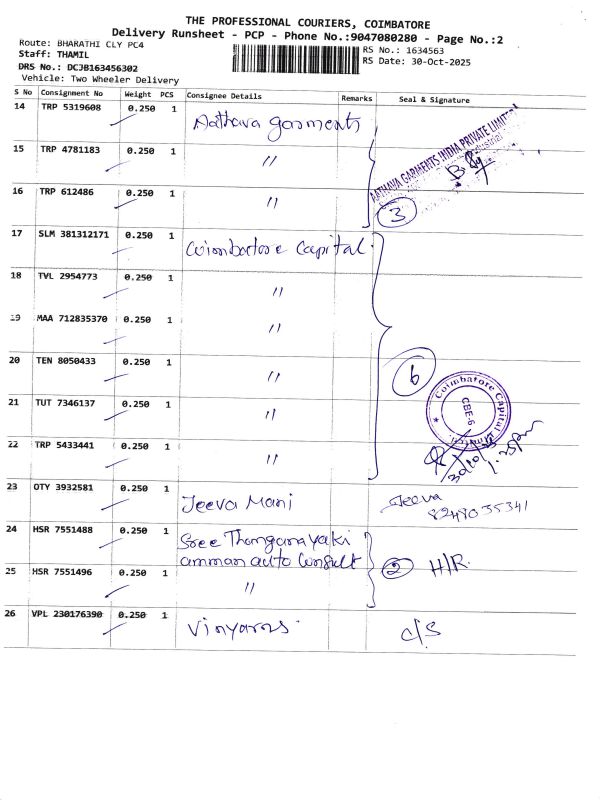 THE PROFESSIONAL COURIERS, COIMBATORE
Delivery Runsheet - PCP - Phone No.:9047080280 - Page No.:2
Route: BHARATHI CLY PC4
Staff: THAMIL
DRS No.: DCJB163456302
Vehicle: Two Wheeler Delivery
RS No.: 1634563
RS Date: 30-Oct-2025
S No Consignment No Weight PCS Consignee Details Remarks Seal & Signature
14 TRP 5319608 0.250 1 Aathava garments
15 TRP 4781183 0.250 1 "
16 TRP 612486 0.250 1 "
3
AATHAVA GARMENTS INDIA PRIVATE LIMITED
17 SLM 381312171 0.250 1 Coimbatore Capital.
18 TVL 2954773 0.250 1 "
19 MAA 712835370 0.250 1 "
20 TEN 8050433 0.250 1 "
6
21 TUT 7346137 0.250 1 "
22 TRP 5433441 0.250 1 "
Coimbatore Capital Limited
CBE-6
23 OTY 3932581 0.250 1 Jeeva Mani Jeeva
8248035341
24 HSR 7551488 0.250 1 Sree Thanganayaki
amman auto Consult 2 H/R.
25 HSR 7551496 0.250 1 "
26 VPL 230176390 0.250 1 Vinyarns. C/S